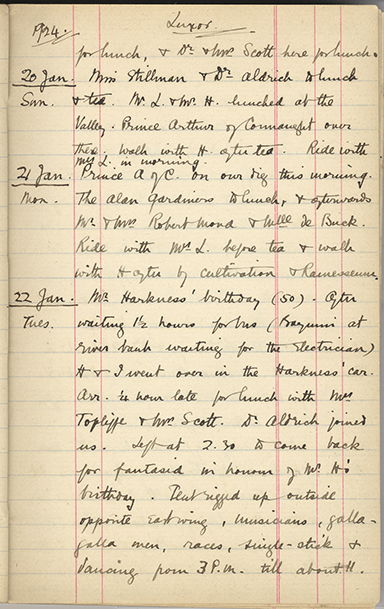 1924. Luxor.
for lunch, & Dr & Mrs Scott here for lunch.
20 Jan. Miss Stillman & Dr Aldrich to lunch
Sun. & tea. Mr L. & Mr H. lunched at the
Valley. Prince Arthur of Connaught over
there. Walk with H. after tea. Ride with
Mrs L. in morning.
21 Jan. Prince A of C. on our dig this morning.
Mon. The Alan Gardiners to lunch, & afterwards
Mr & Mrs Robert Mond & Mlle de Buck.
Ride with Mrs L. before tea & walk
with H after by cultivation & Ramesseum.
22 Jan. Mr Harkness' birthday (50). After
Tues. waiting 1½ hours for bus (Bayumi at
river bank waiting for the Electrician)
H & I went over in the Harkness' car.
Arr. ¼ hour late for lunch with Mrs
Topliffe & Mrs Scott. Dr Aldrich joined
us. Left at 2.30 to come back
for fantasia in honour of Mr H's
birthday. Tent rigged up outside
opposite East wing, musicians, galla-
galla men, races, single-stick &
dancing from 3 P.m. till about 11.